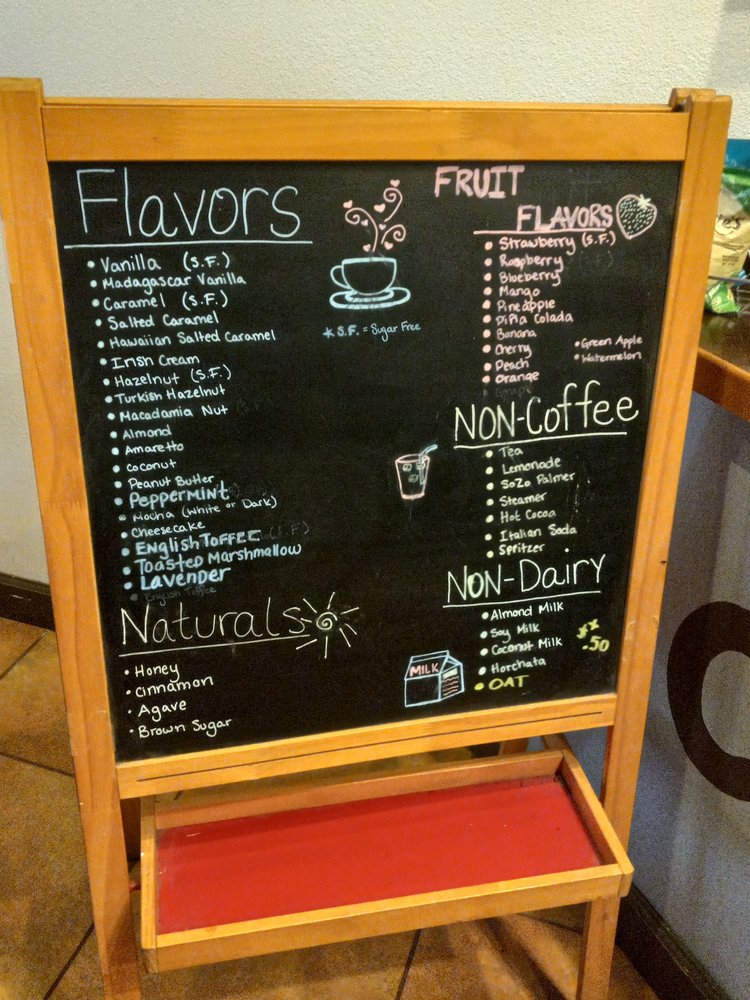 Flavors
• Vanilla (S.F.)
• Madagascar Vanilla
• Caramel (S.F.)
• Salted Caramel
• Hawaiian Salted Caramel
• Irish Cream
• Hazelnut (S.F.)
• Turkish Hazelnut
• Macadamia Nut
• Almond
• Amaretto
• Coconut
• Peanut Butter
• PEPPERMINT
• Mocha (White or Dark)
• Cheesecake
• ENGLISH TOFFEE (S.F.)
• TOASTED MARSHMALLOW
• LAVENDER
• English Toffee
Naturals
• Honey
• Cinnamon
• Agave
• Brown Sugar
* S.F. = Sugar Free
FRUIT
FLAVORS
• Strawberry (S.F.)
• Raspberry
• Blueberry
• Mango
• Pineapple
• Piña Colada
• Banana
• Cherry
• Peach
• Orange
• Grape
• Green Apple
• Watermelon
NON-Coffee
• Tea
• Lemonade
• SoZo Palmer
• Steamer
• Hot Cocoa
• Italian Soda
• Spritzer
NON-Dairy
• Almond Milk
• Soy Milk
• Coconut Milk
• Horchata
• OAT
.50
MILK